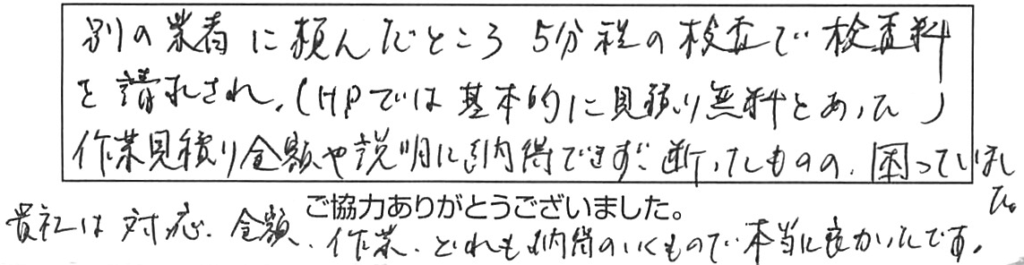 別の業者に頼んだところ5分程の検査で検査料
を請求され、(HPでは基本的に見積り無料とあった)
作業見積り金額や説明に納得できずに断ったものの、困っていまし
た。
ご協力ありがとうございました。
貴社は対応、金額、作業、どれも納得のいくもので本当に良かったです。